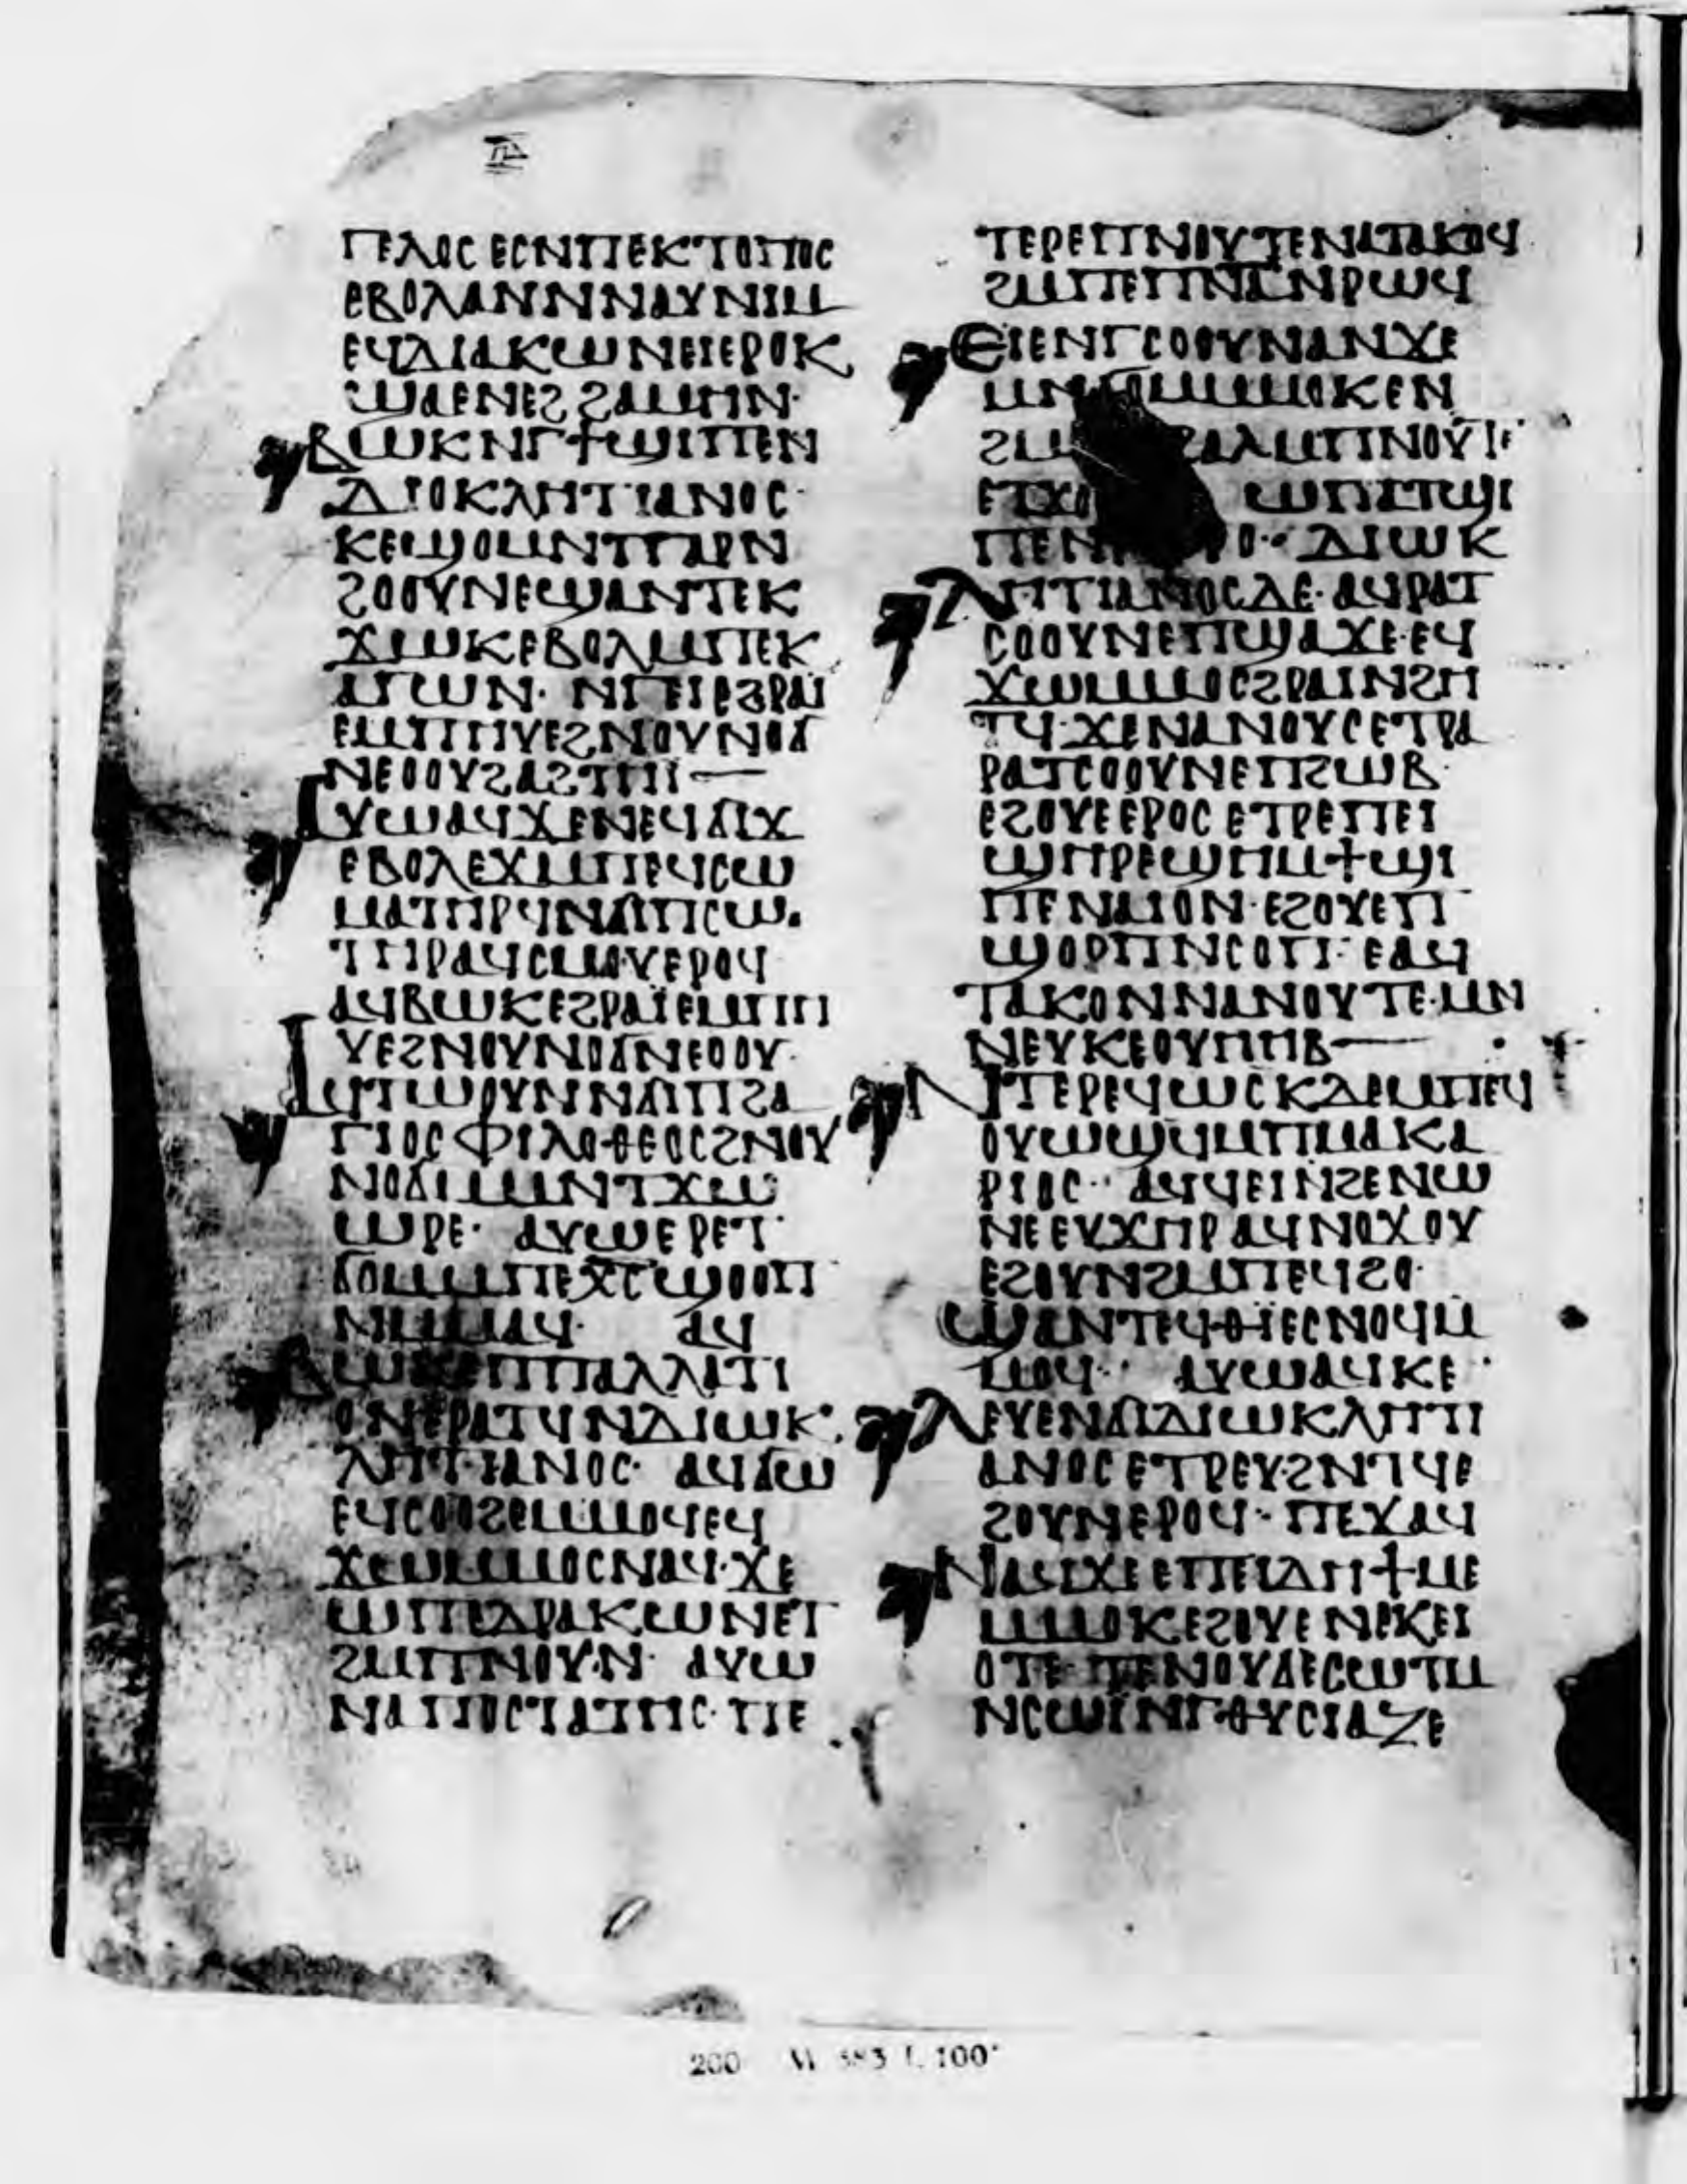 ⲡⲇ
ⲅⲉⲗⲟⲥ ⲉⲥⲛⲡⲉⲕⲧⲟⲡⲟⲥ
ⲉⲃⲟⲗⲁⲛⲛⲛⲁⲩⲛⲓⲙ
ⲉϥⲇⲓⲁⲕⲱⲛⲉⲓⲉⲣⲟⲕ
ϣⲁⲉⲛⲉϩ ϩⲁⲙⲏⲛ·
ⲃⲱⲕⲛⲅϯϣⲓⲡⲉⲛ
ⲇⲓⲟⲕⲗⲏⲧⲓⲁⲛⲟⲥ·
ⲕⲉϣⲟⲙⲛⲧⲅⲁⲣⲛ
ϩⲟⲟⲩⲛⲉϣⲁⲛⲧⲉⲕ
ϫⲱⲕⲉⲃⲟⲗⲙⲡⲉⲕ
ⲁⲅⲱⲛ· ⲛⲅⲉⲓⲉϩⲣⲁⲓ
ⲉⲙⲡⲏⲩⲉϩⲛⲟⲩⲛⲟϭ
ⲛⲉⲟⲟⲩϩⲁϩⲧⲏⲓ—
ⲁⲩⲱⲁϥⲭⲉⲛⲉϥϭⲓϫ
ⲉⲃⲟⲗⲉϫⲙⲡⲉϥⲥⲱ
ⲙⲁⲧⲏⲣϥⲛϭⲓⲡⲥⲱ·
ⲧⲏⲣⲁϥⲥⲙⲟⲩⲉⲣⲟϥ
ⲁϥⲃⲱⲕⲉϩⲣⲁⲓⲉⲙⲡⲏ
ⲩⲉϩⲛⲟⲩⲛⲟϭⲛⲉⲟⲟⲩ·
ⲁϥⲧⲱⲟⲩⲛⲛϭⲓⲡϩⲁ
ⲅⲓⲟⲥ ⲫⲓⲗⲟⲑⲉⲟⲥϩⲛⲟⲩ
ⲛⲟϭⲙⲙⲛⲧϫⲱ
ⲱⲣⲉ· ⲁⲩⲱⲉⲣⲉⲧ
ϭⲟⲙⲙⲡⲉⲭⲥϣⲟⲟⲡ
ⲛⲙⲙⲁϥ· ⲁϥ
ⲃⲱⲕⲉⲡⲡⲁⲗⲗⲁⲧⲓ
ⲟⲛⲉⲣⲁⲧϥⲛⲇⲓⲱⲕ
ⲗⲏⲧⲓⲁⲛⲟⲥ· ⲁϥϭⲱ
ⲉϥⲥⲟⲟϩⲉⲙⲙⲟϥⲉϥ
ϫⲱⲙⲙⲟⲥⲛⲁϥ·ϫⲉ
ⲱⲡⲉⲇⲣⲁⲕⲱⲛⲉⲧ
ϩⲙⲡⲛⲟⲩⲛ· ⲁⲩⲱ
ⲛⲁⲡⲟⲥⲧⲁⲧⲏⲥ·ⲡⲉ
ⲧⲉⲣⲉⲡⲛⲟⲩⲧⲉⲛⲁⲧⲁⲕⲟϥ
ϩⲙⲡⲉⲡⲛⲁⲛⲣⲱϥ
ⲉⲓⲉⲛⲅⲥⲟⲟⲩⲛⲁⲛϫⲉ
ⲙⲛϭⲟⲙⲙⲙⲟⲕⲉⲛ
ϩⲙ ϩⲁⲗⲙⲡⲛⲟⲩⲧⲉ
ⲉⲧϫⲟ ⲱⲡⲉⲧϣⲓ
ⲡⲉⲛ ⲣⲟ·· ⲇⲓⲱⲕ
ⲗⲏⲧⲓⲁⲛⲟⲥⲇⲉ· ⲁϥⲣⲁⲧ
ⲥⲟⲟⲩⲛⲉⲡϣⲁϫⲉ·ⲉϥ
ϫⲱⲙⲙⲟⲥϩⲣⲁⲓⲛϩⲏ
ⲧϥ·ϫⲉⲛⲁⲛⲟⲩⲥⲉⲧⲣⲁ
ⲣⲁⲧⲥⲟⲟⲩⲛⲉⲡϩⲱⲃ·
ⲉϩⲟⲩⲉⲉⲣⲟⲥ ⲉⲧⲣⲉⲡⲉⲓ
ϣⲏⲣⲉϣⲏⲙϯϣⲓ
ⲡⲉⲛⲁⲓⲟⲛ·ⲉϩⲟⲩⲉⲡ
ϣⲟⲣⲡⲛⲥⲟⲡ· ⲉⲁϥ
ⲧⲁⲕⲟⲛⲛⲁⲛⲟⲩⲧⲉ·ⲙⲛ
ⲛⲉⲩⲕⲉⲟⲩⲏⲏⲃ—
ⲛⲧⲉⲣⲉϥⲱⲥⲕⲇⲉⲙⲡⲉϥ
ⲟⲩⲱϣϥⲙⲡⲙⲁⲕⲁ
ⲣⲓⲟⲥ·· ⲁϥϥⲉⲓⲛϩⲉⲛⲱ
ⲛⲉⲉⲩϫⲏⲣⲁϥⲛⲟϫⲟⲩ
ⲉϩⲟⲩⲛϩⲙⲡⲉϥϩⲟ·
ϣⲁⲛⲧⲉϥⲑⲓⲉⲥⲛⲟϥⲙ
ⲙⲟϥ·· ⲁⲩⲱⲁϥⲕⲉ
ⲗⲉⲩⲉⲛϭⲓⲇⲓⲱⲕⲗⲏⲧⲓ
ⲁⲛⲟⲥ ⲉⲧⲣⲉⲩϩⲛⲧϥⲉ
ϩⲟⲩⲛⲉⲣⲟϥ· ⲡⲉϫⲁϥ
ⲛⲁϥϫⲉⲉⲡⲉⲓⲇⲏϯⲙⲉ
ⲙⲙⲟⲕⲉϩⲟⲩⲉⲛⲉⲕⲉⲓ
ⲟⲧⲉ· ⲧⲉⲛⲟⲩϭⲉⲥⲱⲧⲙ
ⲛⲥⲱⲓⲛⲅⲑⲩⲥⲓⲁⲍⲉ
200 M 583 f. 100ʳ